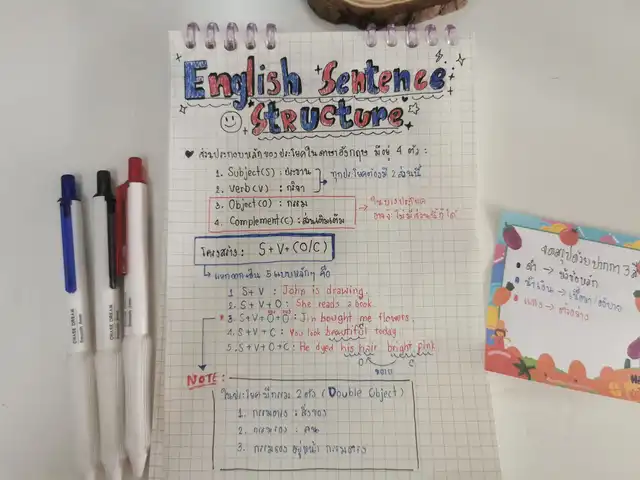 English Sentence
Structure
♥ ส่วนประกอบหลักของประโยคในภาษาอังกฤษ มีอยู่ 4 ตัว :
1. Subject(S) : ประธาน
2. Verb(V) : กริยา
ทุกประโยคต้องมี 2 ส่วนนี้
3. Object(O) : กรรม
4. Complement(C) : ส่วนเติมเต็ม
ในบางประโยค
อาจจะไม่มีส่วนนี้ก็ได้
โครงสร้าง : S+V+(O/C)
แยกออกเป็น 5 แบบหลักๆ คือ
1. S+V : John is drawing.
2. S+V+O : She reads a book.
3. S+V+O+O : Jin bought me flowers.
4. S+V+C : You look beautiful today.
5. S+V+O+C : He dyed his hair bright pink.
O C
ขยาย
NOTE :
ในประโยคมีกรรม 2 ตัว (Double Object)
1. กรรมตรง : สิ่งของ
2. กรรมรอง : คน
3. กรรมรอง อยู่หน้า กรรมตรง
จดสรุปด้วยปากกา 3 สี
ดำ → หัวข้อหลัก
น้ำเงิน → เนื้อหา/อธิบาย
แดง → ตัวอย่าง